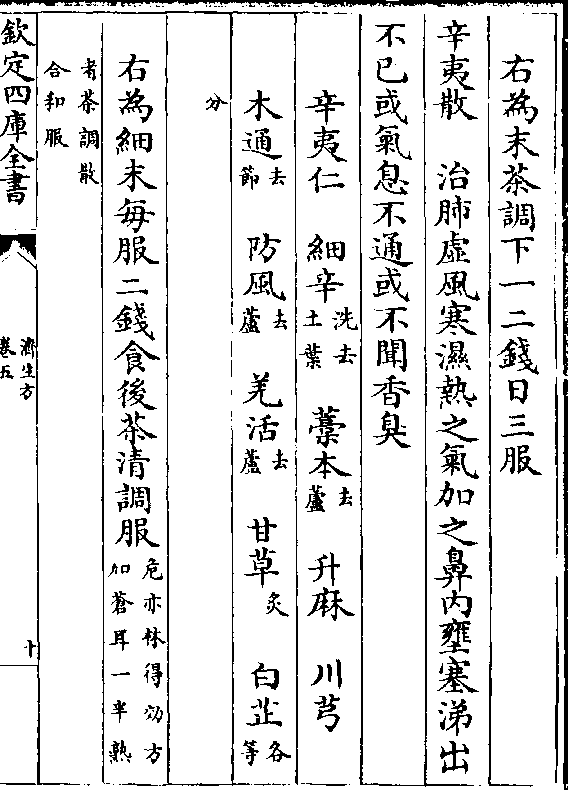 右為末茶調下一二錢日三服
辛夷散　治肺虛風寒濕熱之氣加之鼻內壅塞涕出
不已或氣息不通或不聞香臭
辛夷仁　細辛洗去土葉　藁本去蘆　升麻　川芎
木通去節　防風去蘆　羌活去蘆　甘草炙　白芷各等
分
右為細末每服二錢食後茶清調服危亦林得効方加蒼耳一半熟
者茶調散合和服
欽定四庫全書
濟生方
卷五
十